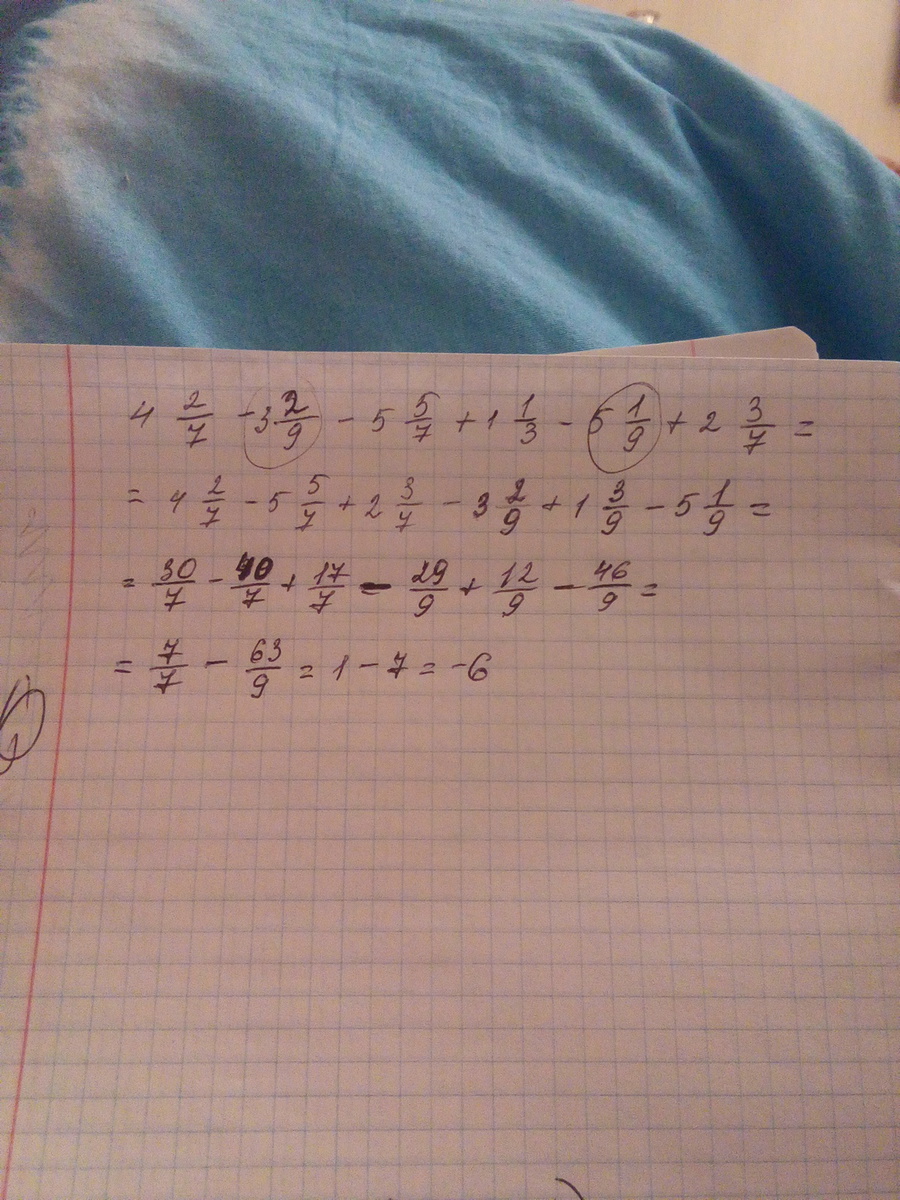 4 2/7 - 3 2/9 - 5 5/7 + 1 1/3 - 5 1/9 + 2 3/7 =
= 4 2/7 - 5 5/7 + 2 3/7 - 3 2/9 + 1 3/9 - 5 1/9 =
= 30/7 - 40/7 + 17/7 - 29/9 + 12/9 - 46/9 =
= 7/7 - 63/9 = 1 - 7 = -6